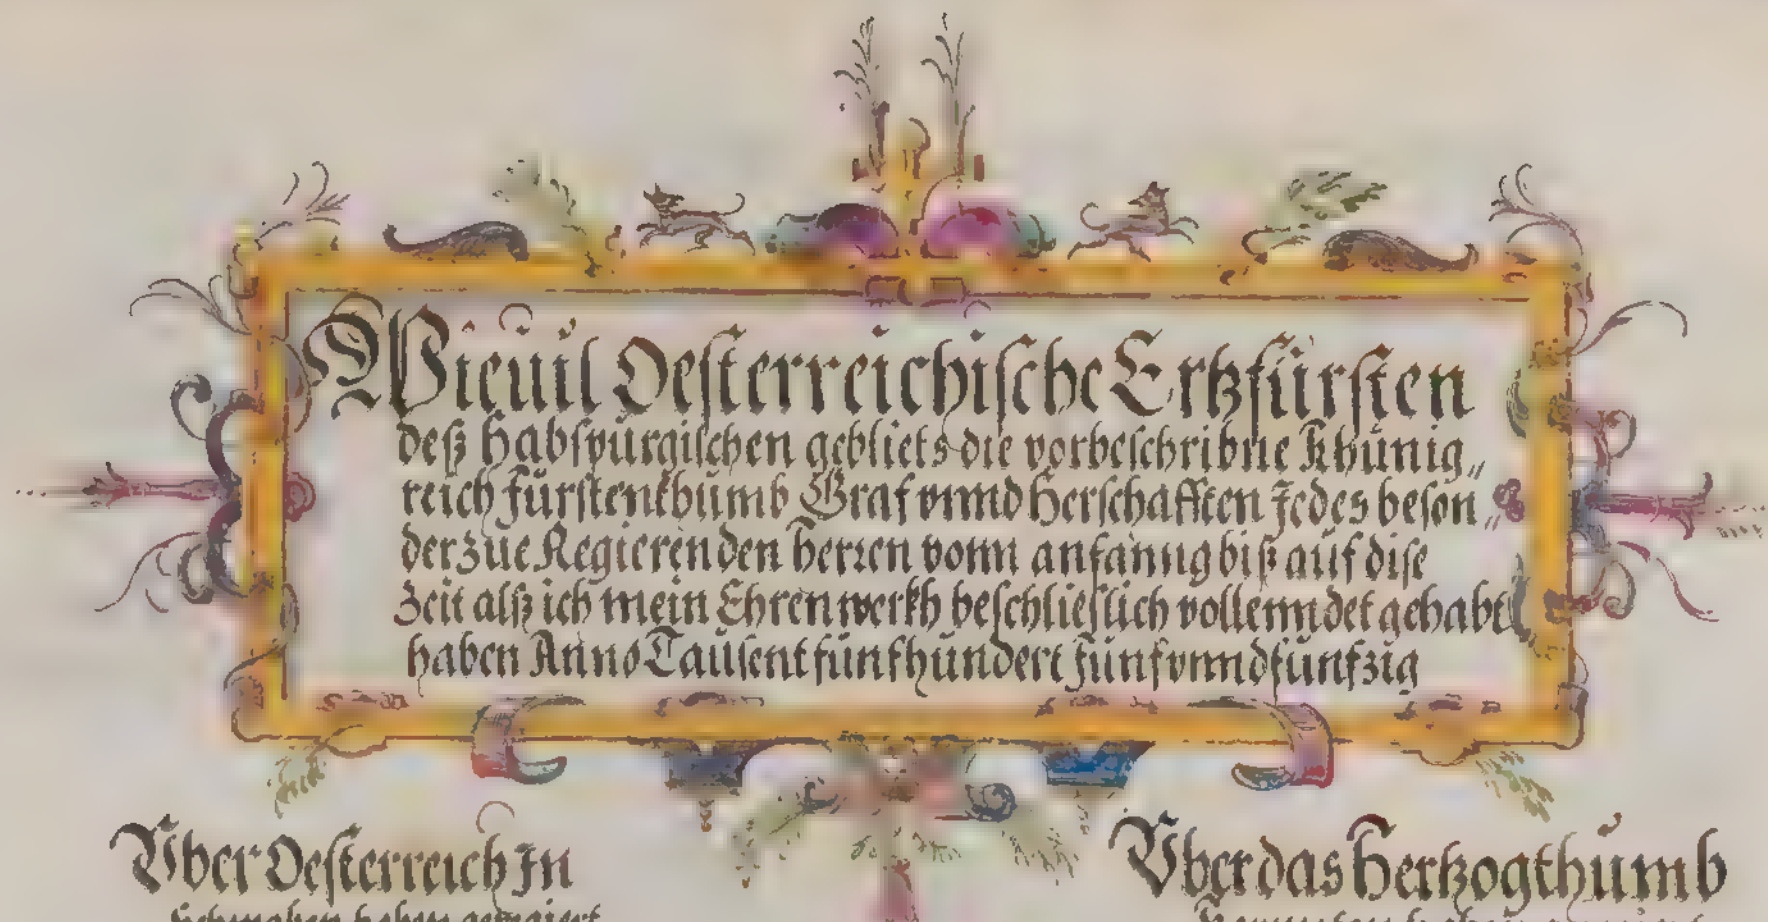 Wieuil Oesterreichische Ertzfürsten
deß Habspurgischen gebliets die vorbeschribne Khünig„
reich fürstenthümb Graf vnnd Herschafften Jedes beson„
der züe Regierenden herren vonn anfanng biß aüf dise
Zeit alß ich mein Ehrenwerkh beschlieslich vollenndet gehabt
haben Anno Taüsent fünfhündert fünf vnnd fünfzig
Vber Oesterreich In
Schwaben haben geregiert
Vber das Hertzogthümb